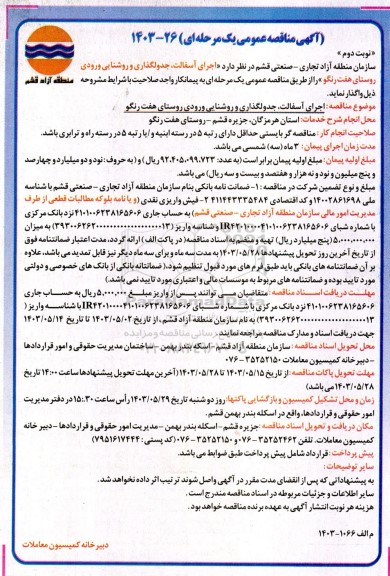 (آگهی مناقصه عمومی یک مرحله ای) ۲۶-۱۴۰۳
«نوبت دوم»
سازمان منطقه آزاد تجاری - صنعتی قشم در نظر دارد «اجرای آسفالت، جدولگذاری و روشنایی ورودی
روستای هفت رنگو» را از طریق مناقصه عمومی یک مرحله ای به پیمانکار واجد صلاحیت با شرایط مشروحه
ذیل واگذار نماید.
منطقه آزاد قشم
موضوع مناقصه: اجرای آسفالت، جدولگذاری و روشنایی ورودی روستای هفت رنگو
محل انجام شرح خدمات: استان هرمزگان، جزیره قشم - روستای هفت رنگو
صلاحیت انجام کار: مناقصه گر بایستی حداقل دارای رتبه ۵ در رسته ابنیه و / یا رتبه ۵ در رسته راه و ترابری باشد.
مدت زمان اجرای پیمان: ۳ ماه (سه) شمسی می باشد.
مبلغ اولیه پیمان: مبلغ اولیه پیمان برابر است (به عدد: ۹۲،۴۰۵،۰۹۹،۷۲۳ ریال) و (به حروف: نود و دو میلیارد و چهارصد
و پنج میلیون و نود و نه هزار و هفتصد و بیست و سه ریال) می باشد.
مبلغ و نوع تضمین شرکت در مناقصه: ۱- ضمانت نامه بانکی بنام سازمان منطقه آزاد تجاری - صنعتی قشم با شناسه
ملی ۱۴۰۰۲۸۶۱۶۹۸ و کد اقتصادی ۴۱۱۴۴۳۳۳۵۴۸۴ ۲- فیش واریزی نقدی (و یا نامه بلوکه مطالبات قطعی از طرف
مدیریت امور مالی سازمان منطقه آزاد تجاری - صنعتی قشم) به حساب جاری ۴۱۰۱۰۰۶۲۳۸۱۶۵۶۰۶ نزد بانک مرکزی
با شماره شبای IR۴۲۰۱۰۰۰۰۴۱۰۱۰۰۶۲۳۸۱۶۵۶۰۶ و شناسه واریز (۳۹۳۰۰۶۲۶۲۰۰۰۰۰۰۰۰۰۰۰۰۰۰۰۰۰۰۱۳) به میزان
۵،۰۰۰،۰۰۰،۰۰۰ (پنج میلیارد ریال) تهیه و منضم به اسناد مناقصه (در پاکت الف) ارائه گردد، مدت اعتبار ضمانتنامه فوق
از تاریخ آخرین روز تحویل پیشنهادها ۱۴۰۳/۰۵/۲۸ به مدت سه ماه و برای سه ماه دیگر نیز قابل تمدید می باشد. علاوه
بر آن ضمانتنامه های بانکی باید طبق فرم های مورد قبول تنظیم شود. (ضمانتنامه بانکی از بانک های خصوصی و دولتی
مورد تایید بوده و ضمانتنامه های مربوط به موسسات مالی و اعتباری مورد تایید نمی باشد)
مهلت دریافت اسناد مناقصه: متقاضیان می توانند پس از واریز مبلغ ۵،۰۰۰،۰۰۰ ریال به حساب جاری
۴۱۰۱۰۰۶۲۳۸۱۶۵۶۰۶ نزد بانک مرکزی با شماره شبای IR۴۲۰۱۰۰۰۰۴۱۰۱۰۰۶۲۳۸۱۶۵۶۰۶ با شناسه واریز (
۳۹۳۰۰۶۲۶۲۰۰۰۰۰۰۰۰۰۰۰۰۰۰۰۰۰۰۱۳) به نام سازمان منطقه آزاد قشم، از تاریخ ۱۴۰۳/۰۵/۰۲ تا تاریخ ۱۴۰۳/۰۵/۱۴
جهت دریافت اسناد و مدارک مناقصه مراجعه نمایند.
محل تحویل اسناد مناقصه: سازمان منطقه آزاد قشم - اسکله بندر بهمن - ساختمان مدیریت حقوقی و امور قراردادها
- دبیرخانه کمیسیون معاملات ۳۵۲۵۲۱۵۰-۰۷۶
مهلت تحویل پاکات مناقصه: از تاریخ ۱۴۰۳/۰۵/۱۵ تا ۱۴۰۳/۰۵/۲۸ (آخرین مهلت تحویل پیشنهادها ساعت ۱۴:۰۰ تاریخ
۱۴۰۳/۰۵/۲۸ می باشد)
زمان و محل تشکیل کمیسیون و بازگشایی پاکتها: روز دو شنبه تاریخ ۱۴۰۳/۰۵/۲۹ رأس ساعت ۱۵:۳۰ در دفتر مدیریت
امور حقوقی و قراردادها، واقع در اسکله بندر بهمن قشم.
مکان دریافت و تحویل اسناد مناقصه: جزیره قشم - اسکله بندر بهمن - مدیریت امور حقوقی و قراردادها - دبیرخانه
کمیسیون معاملات. تلفن ۳۵۲۵۲۴۶۲-۰۷۶ و ۳۵۲۵۲۱۵۰-۰۷۶ (کد پستی: ۷۹۵۱۶۱۷۴۴۴)
پیش پرداخت: قرارداد شامل پیش پرداخت طبق ضوابط می باشد.
سایر توضیحات:
به پیشنهاداتی که پس از انقضای مدت مقرر در آگهی واصل شوند ترتیب اثر داده نخواهد شد.
سایر اطلاعات و جزئیات مربوطه در اسناد مناقصه مندرج است.
هزینه هر نوبت انتشار آگهی به عهده برنده مناقصه خواهد بود.
م الف ۱۰۶۶-۱۴۰۳
دبیرخانه کمیسیون معاملات